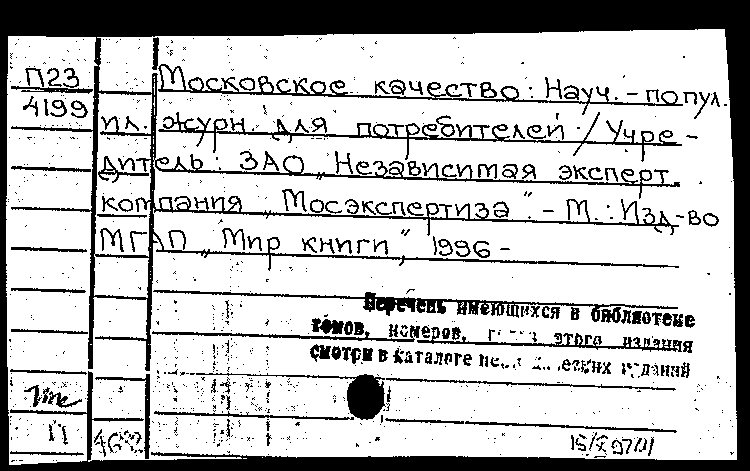 П23
4199
Московское качество: Науч.-попул.
ил. журн. для потребителей / Учре-
дитель: ЗАО „Независимая эксперт.
компания „Мосэкспертиза". - М.: Изд-во
МГАП „Мир книги", 1996 -
Перечень имеющихся в библиотеке
томов, номеров, этого издания
смотри в каталоге изданий
П